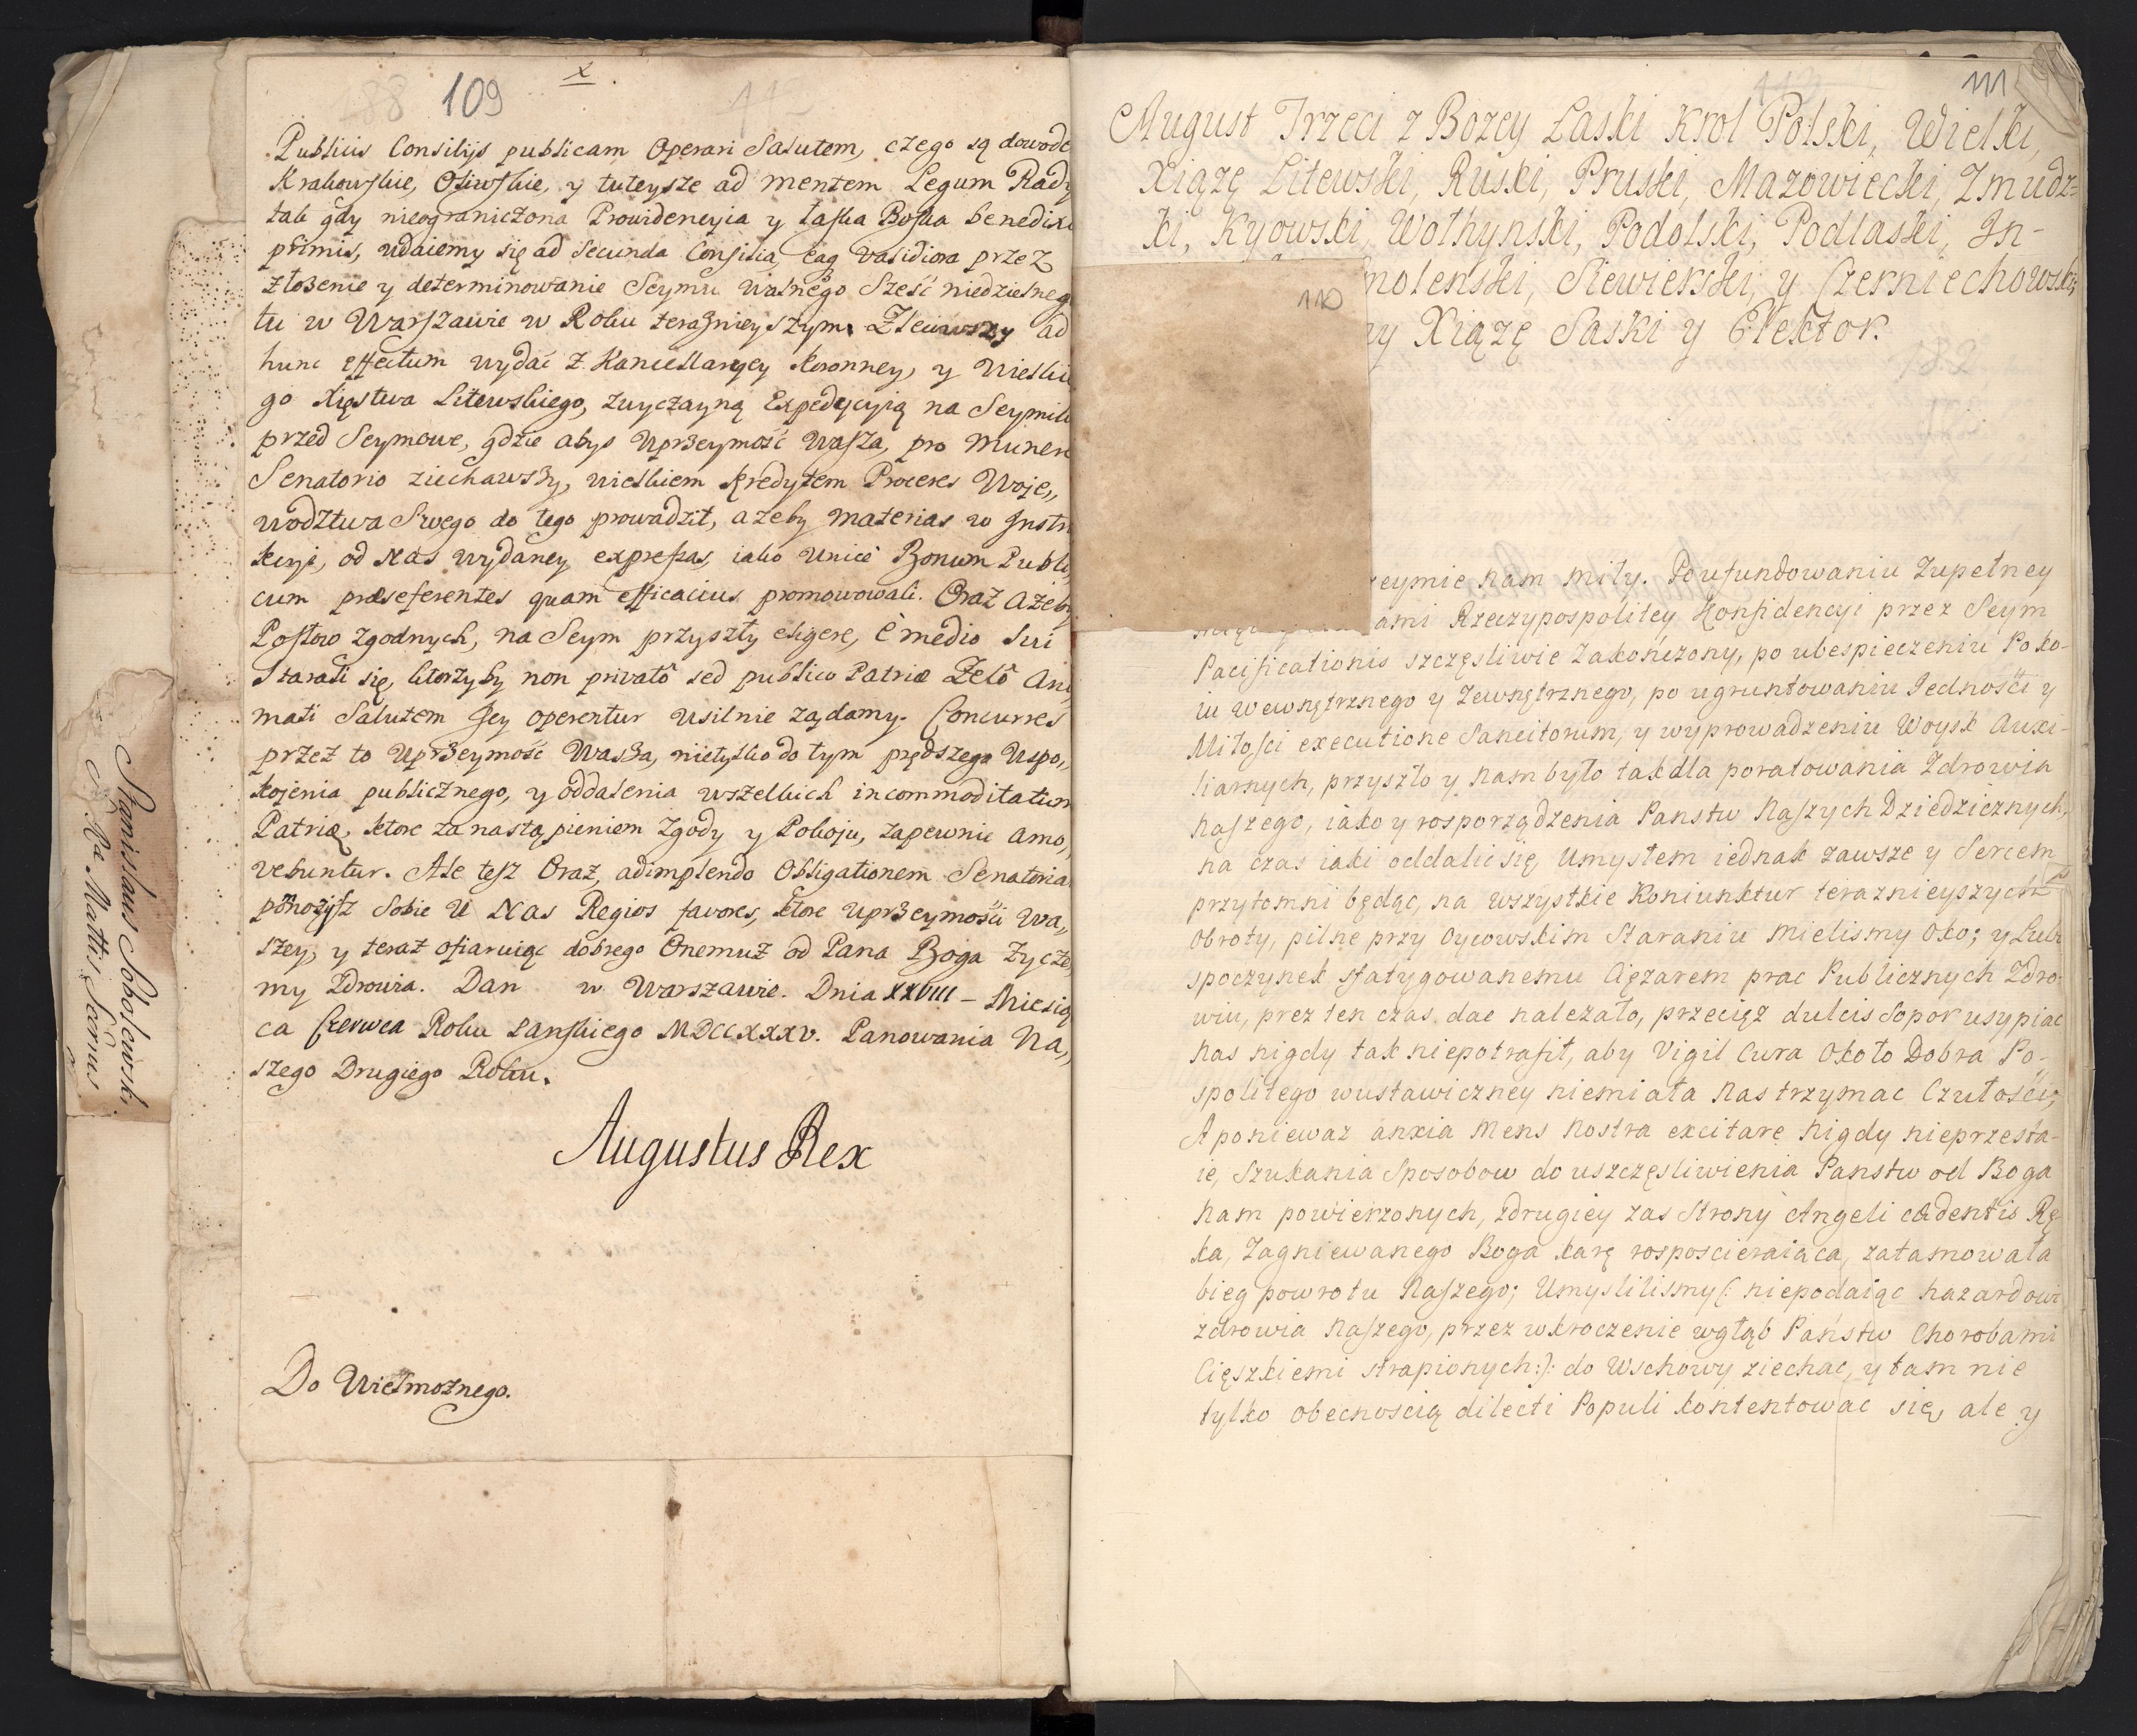 109
x
Publicis Consilijs publicam Operari Salutem, czego są dowode
Krakowskie, Oliwskie, y tuteysze ad mentem Legum Rady
tak gdy nieograniczona Prowidencyia y łaska Boska benedixi
primis, udaiemy się ad Secunda Consilia, eaq validiora przez
złożenie y determinowanie Seymu walnego Sześć niedzielneg
tu w Warszawie w Roku teraźnieyszym. Zleciwszy ad
hunc effectum wydać z Kancellaryey Koronney, y Wielkie
go Xięstwa Litewskiego, zwyczayną Expedycyią na Seymik
przed Seymowe, gdzie abyś Uprzeymość Wasza, pro munere
Senatorio ziechawszy, wielkiem kredytem Proceres Woje,,
wodztwa Swego do tego prowadził, ażeby materias w Instr
kcyi, od Nas wydaney expressas, iako unicè Bonum Publi
cum præseferentes quam efficacius promowowali. Oraz ażeby
Posłow zgodnych, na Seym przyszły eligere, è medio sui
starali się, ktorzyby non privatô sed publico Patriæ Zelô Ani,,
mati Salutem Jey operentur usilnie żądamy. Concurres
przez to Uprzeymość Wasza, nietylko do tym prędszego Uspo,,
kojenia publicznego, y oddalenia wszelkich incommoditatum
Patriæ, ktore za nastąpieniem Zgody y Pokoju, zapewnie amo,,
vebuntur. Ale tesz Oraz, adimplendo Obligationem Senatoria
pomożysz sobie u Nas Regios favores, ktore Uprzeymości Wa,,
szey, y teraz ofiaruiąc dobrego Onemuż od Pana Boga życze,,
my Zdrowia. Dan w Warszawie. Dnia XXVIII – Miesią
ca Czerwca Roku Pańskiego MDCCXXXV. Panowania Na,,
szego Drugiego Roku.
Augustus Rex
Do Wielmożnego.
Stanislaus Sobolewski
Sa Rα Mattis Secrius
111
August Trzeci z Bozey Łaski Krol Polski, Wielki,
Xiążę Litewski, Ruski, Pruski, Mazowiecki, Zmudz=
ki, Kyowski, Wołhynski, Podolski, Podlaski, In-
molenski, Siewierski, y Czerniechowski,
110
ny Xiążę Saski y Elektor.
eymie nam miły. Po ufundowaniu Zupełney
ami Rzeczypospolitey Konfidencyi przez Seym
Pacificationis szczęsliwie Zakończony, po ubespieczeniu Poko-
iu wewnętrznego y Zewnętrznego, po ugruntowaniu Jedności y
Miłości executione Sancitorum, y wyprowadzeniu Woysk Auxi-
liarnych, przyszło y nam było tak dla poratowania Zdrowia
naszego, iako y rosporządzenia Panstw Naszych Dziedzicznych,
na czas iaki oddalic się Umysłem iednak zawsze y Sercem
przytomni będąc, na wszystkie Koniunktur teraznieyszych
obroty, pilne przy Oycowskim Staraniu mielismy Oko; y Lub
spoczynek sfatygowanemu Ciężarem prac Publicznych Zdro-
wiu, prez ten czas dac należało, przeciąż dulcis Sopor usypiac
nas nigdy tak niepotrafił, aby Vigil Cura Około Dobra Po-
spolitego wustawiczney niemiała Nas trzymac Czułości,
A ponieważ anxia mens Nostra excitare nigdy nieprzesta-
ie, Szukania Sposobow do uszczęsliwienia Panstw od Boga
nam powierzonych, zdrugiey zas Strony Angeli cædentis Rę-
ka, Zagniewanego Boga karę rosposcieraiąca, zatamowała
bieg powrotu Naszego; Umyslilismy (: niepodaiąc hazardowi
zdrowia naszego, przez wkroczenie wgłąb Państw Chorobami
Cięszkiemi strapionych:) do Wschowy ziechac, y tam nie
tylko obecnoscią dilecti Populi kontentowac się, ale y